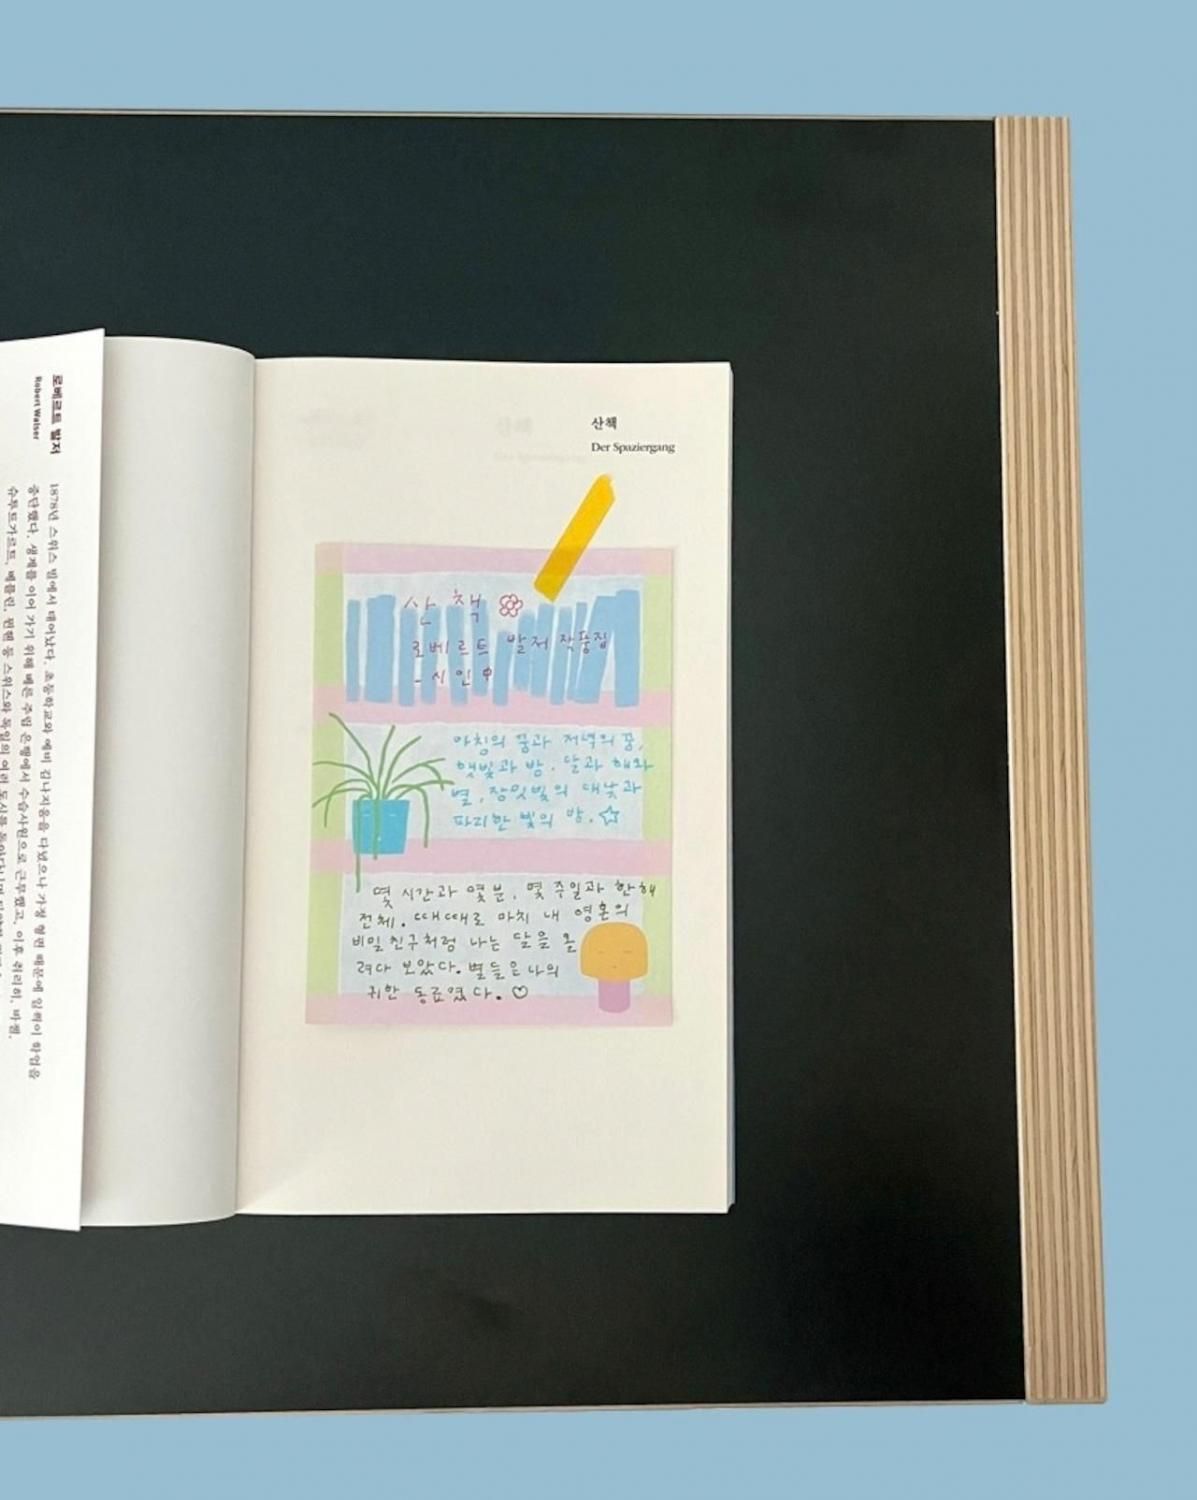 로베르트 발저
Robert Walser
1878년 스위스 빌에서 태어났다. 초등학교와 예비 김나지움을 다녔으나 가정 형편 때문에 일찍이 학업을
중단했다. 생계를 이어 가기 위해 베른 주립 은행에서 수습사원으로 근무했고, 이후 취리히, 바젤,
슈투트가르트, 베를린, 뮌헨 등 스위스와 독일의 여러 도시를
산책
Der Spaziergang
산책
로베르트 발저 작품집
- 시인
아침의 꿈과 저녁의 꿈,
햇빛과 밤. 달과 해와
별, 장밋빛의 대낮과
파리한 빛의 밤.
몇 시간과 몇 분, 몇 주일과 한 해
전체. 때때로 마치 내 영혼의
비밀 친구처럼 나는 달을 올
려다 보았다. 별들은 나의
귀한 동료였다.